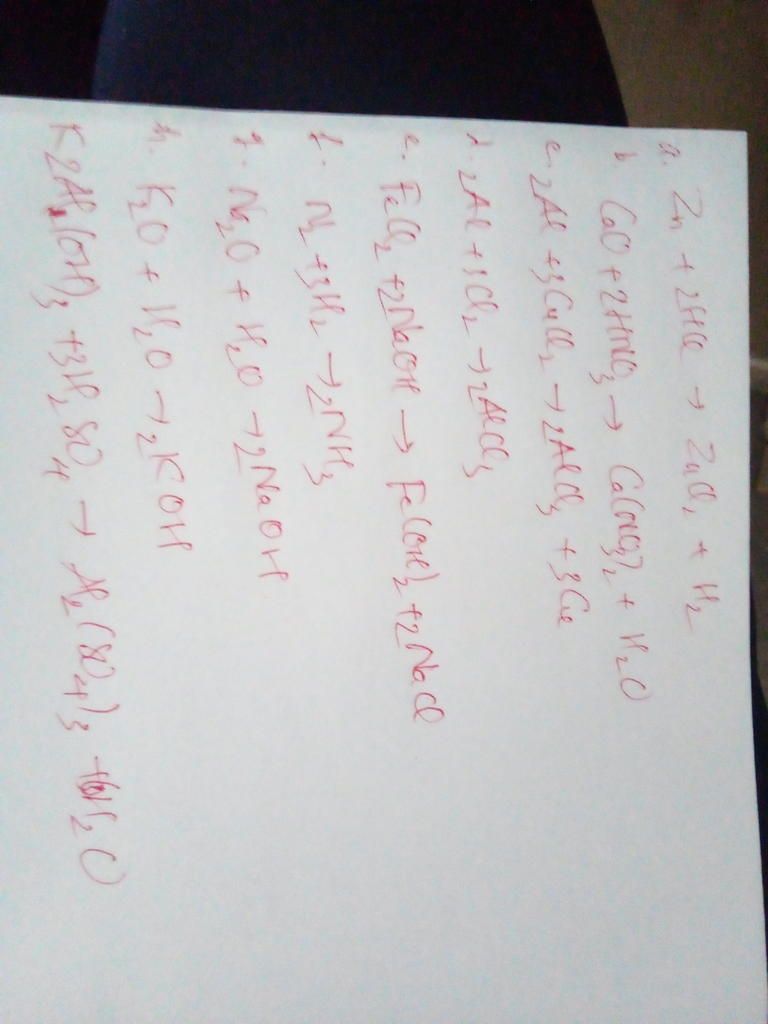 a. Zn + 2HCl → ZnCl₂ + H₂
b. CaO + 2HNO₃ → Ca(NO₃)₂ + H₂O
c. 2Al + 3CuCl₂ → 2AlCl₃ + 3Cu
d. 2Al + 3Cl₂ → 2AlCl₃
e. FeCl₂ + 2NaOH → Fe(OH)₂ + 2NaCl
f. N₂ + 3H₂ → 2NH₃
g. Na₂O + H₂O → 2NaOH
h. K₂O + H₂O → 2KOH
K 2Al(OH)₃ + 3H₂SO₄ → Al₂(SO₄)₃ + 6H₂O